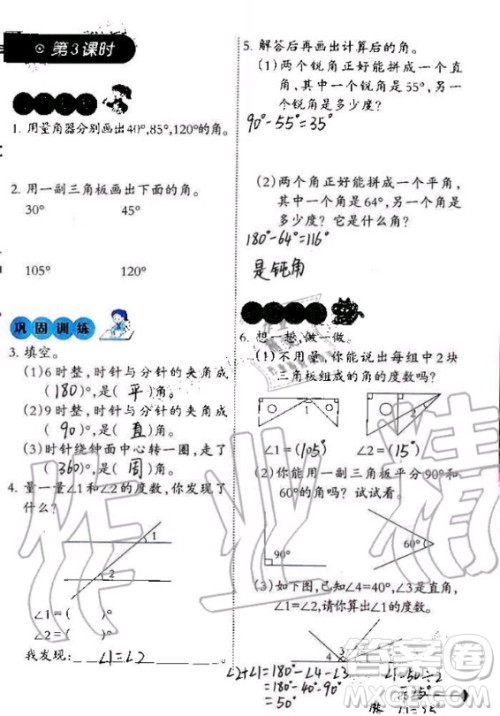 第3课时
1. 用量角器分别画出40°,85°,120°的角。
2. 用一副三角板画出下面的角。
30° 45°
105° 120°
巩固训练
3. 填空。
(1)6时整,时针与分针的夹角成
(180)°,是(平)角。
(2)9时整,时针与分针的夹角成
(90)°,是(直)角。
(3)时针绕钟面中心转一圈,走了
(360)°,是(周)角。
4. 量一量∠1和∠2的度数,你发现了
什么?
1
2
∠1=( )°
∠2=( )°
我发现: ∠1=∠2
5. 解答后再画出计算后的角。
(1)两个锐角正好能拼成一个直
角,其中一个锐角是55°,另一
个锐角是多少度?
90°-55°=35°
(2)两个角正好能拼成一个平角,
其中一个角是64°,另一个角是
多少度?它是什么角?
180°-64°=116°
是钝角
6. 想一想,做一做。
(1)不用量,你能说出每组中2块
三角板组成的角的度数吗?
1 2
∠1=(105°) ∠2=(15°)
(2)你能用一副三角板平分90°的角
和60°的角吗?试试看。
90° 60°
(3)如下图,已知∠4=40°,∠3是直角,
∠1=∠2,请你算出∠1的度数。
4 3
∠2+∠1=180°-∠4-∠3
=180°-40°-90°
=50°
∠1=50°÷2
=25°
作业精
答案圈